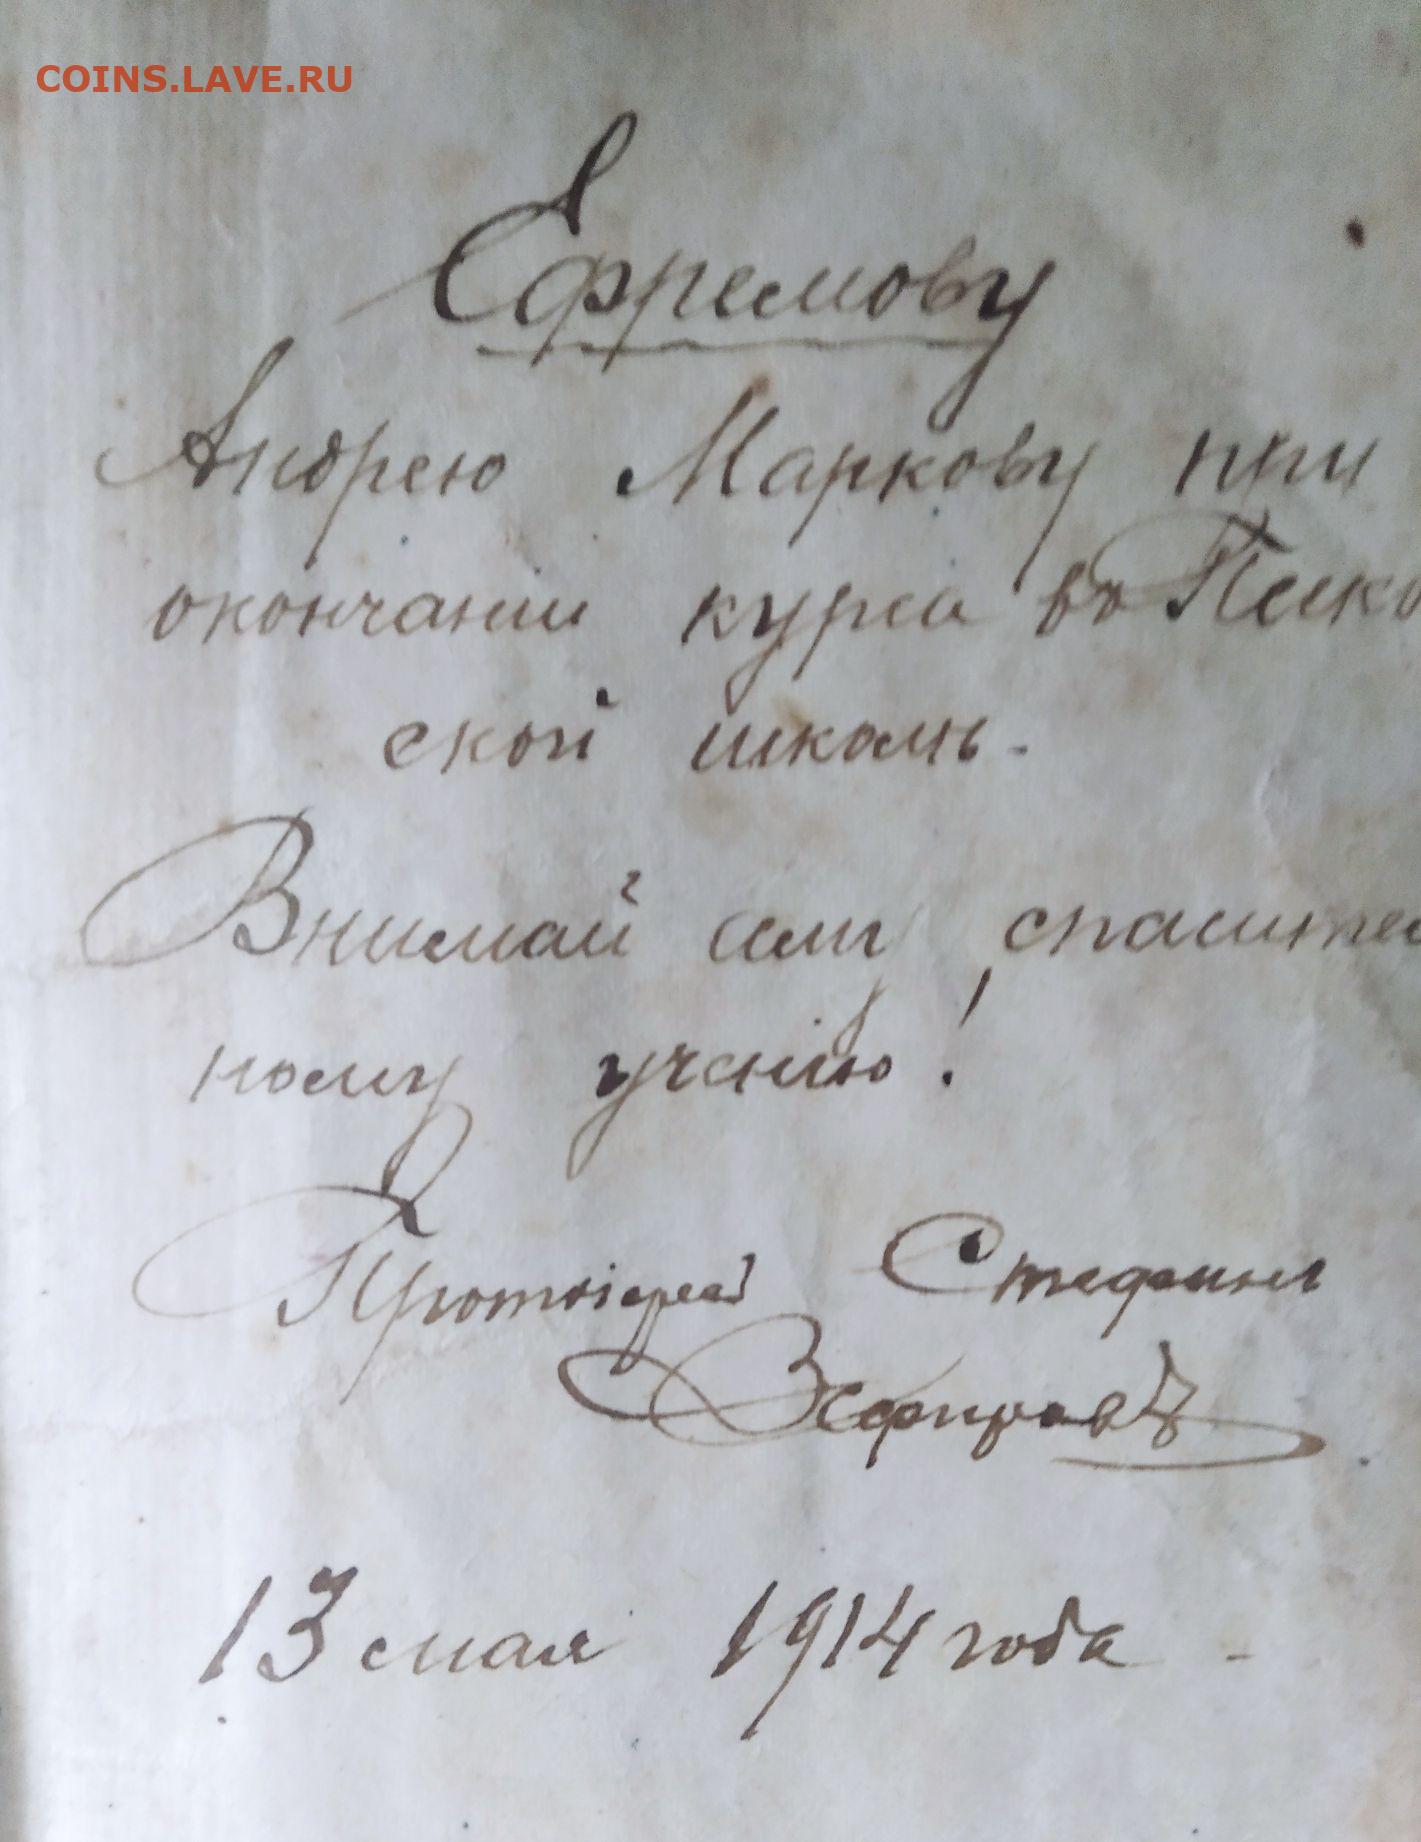 COINS.LAVE.RU
Ефремову
Андрею Маркову при
окончанiи курса во
ской школѣ.
Внимай сему спасител
ному ученiю!
Протоiерей Стефанъ
Зефировъ
13 мая 1914 года